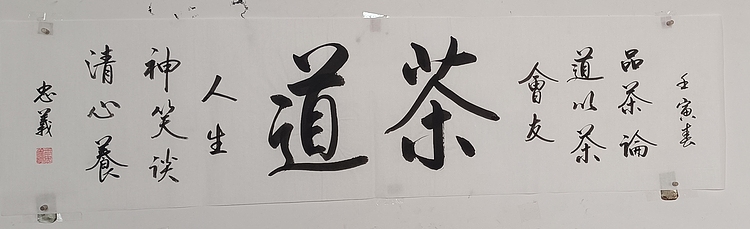 壬寅春
品茶論
道以茶
會友
茶道
人生
神笑谈
清心養
忠義